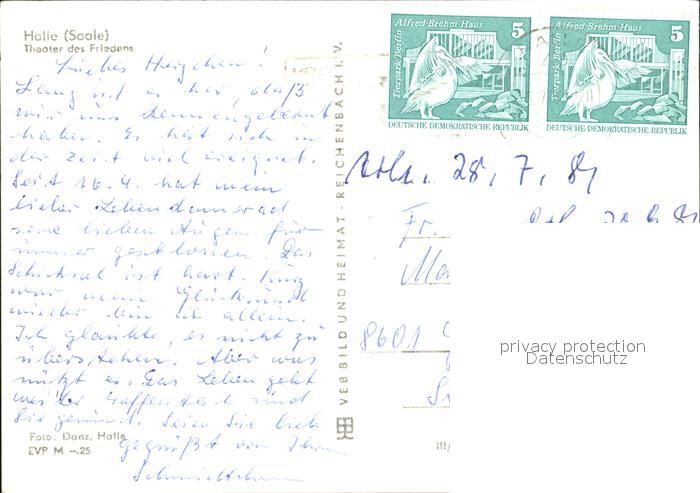 Halle (Saale)
Theater des Friedens
Liebes Herzchen!
Lang ist es her, daß
wir uns kennengelernt
haben. Es hat sich in
der Zeit viel ereignet.
Seit 16.4. hat mein
lieber Lebenskamerad
seine lieben Augen für
immer geschlossen. Das
Schicksal ist hart. Kurz
war mein Glück und
wieder bin ich allein.
Ich glaubte, es nicht zu
überstehen. Aber was
nützt es. Das Leben geht
weiter. Hoffentlich sind
Sie gesund. Seien Sie lieb
gegrüßt von Ihrem
Schmidtchen
Foto: Danz, Halle
EVP M –.25
VEB BILD UND HEIMAT · REICHENBACH I. V.
III/
Alfred-Brehm-Haus 5
Tierpark Berlin
DEUTSCHE DEMOKRATISCHE REPUBLIK
Alfred-Brehm-Haus 5
Tierpark Berlin
DEUTSCHE DEMOKRATISCHE REPUBLIK
28. 7. 81
Fr.
8601
privacy protection
Datenschutz